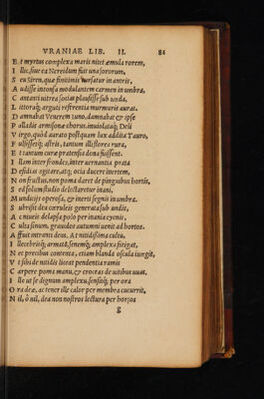 URANIAE LIB. II. 81
E t myrtus complexa maris nitet æmula rorem,
I llic, siue ea Nereidum fuit una sororum,
S eu Siren, quæ finitimis uersatur in antris,
A udisse intonsa modulantem carmen in umbra,
C antanti uitrea socias plausisse sub unda.
L ittoraq; arguti refrentia murmuris aurat.
D amnabat Venerem Iuno, damnabat & ipse
P alladis armisonæ chorus. inuiolataq; Deûm
V irgo, quod aurato postquam lux addita Tauro,
F ulsisset q; astris, tantum illis flore rura,
E t tantum curæ pratensia dona fuissent.
I llam inter frondes, inter uernantia prata
D esidias agitare, atq; ocia ducere inertem,
N on fructus, non poma daret de pinguibus hortis,
S ed solum studio delectaretur inani,
M undicijs operosa, & inerti segnis in umbra.
S ubrisit dea cæruleis generata sub undis,
A c niueis delapsa polo per inania cycnis,
C ulta sinum, grauidos autumni uenit ad hortos.
A ffuit intranti deus. At nitidissima cultu,
I llecebrisq; armata, senemq; amplexa fatigat,
N ec precibus contenta, etiam blanda oscula iungit,
V t sibi de nitidis liceat pendentia ramis
C arpere poma manu, & croceas de uitibus uuas.
I lle ut se dignum amplexu, sensitq; per ora
O ra deæ, ac tener ille calor per membra cucurrit,
N il, ô nil, dea nos nostros lectura per hortos
g